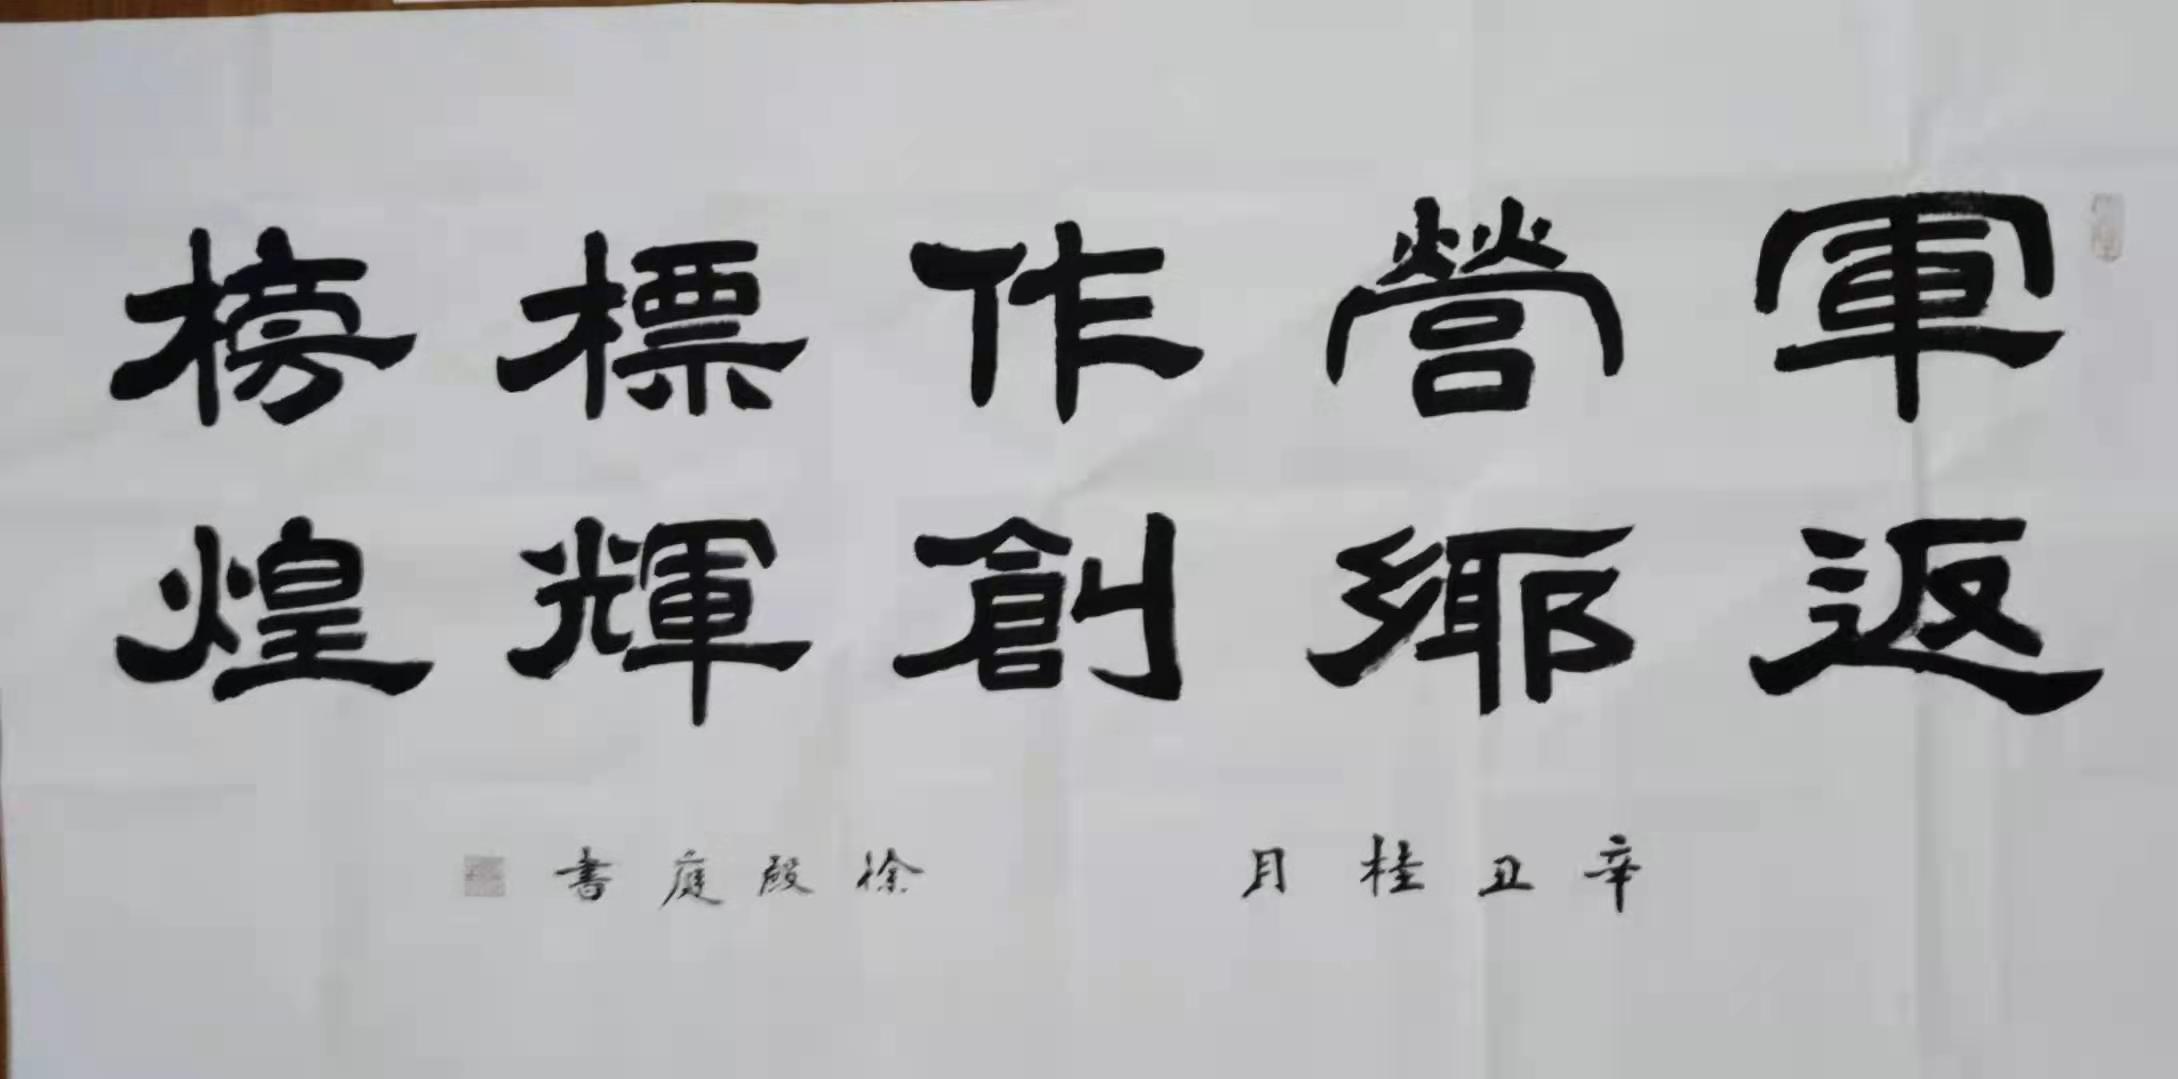 軍營作標榜
返鄉創輝煌
辛丑桂月
徐殿庭書